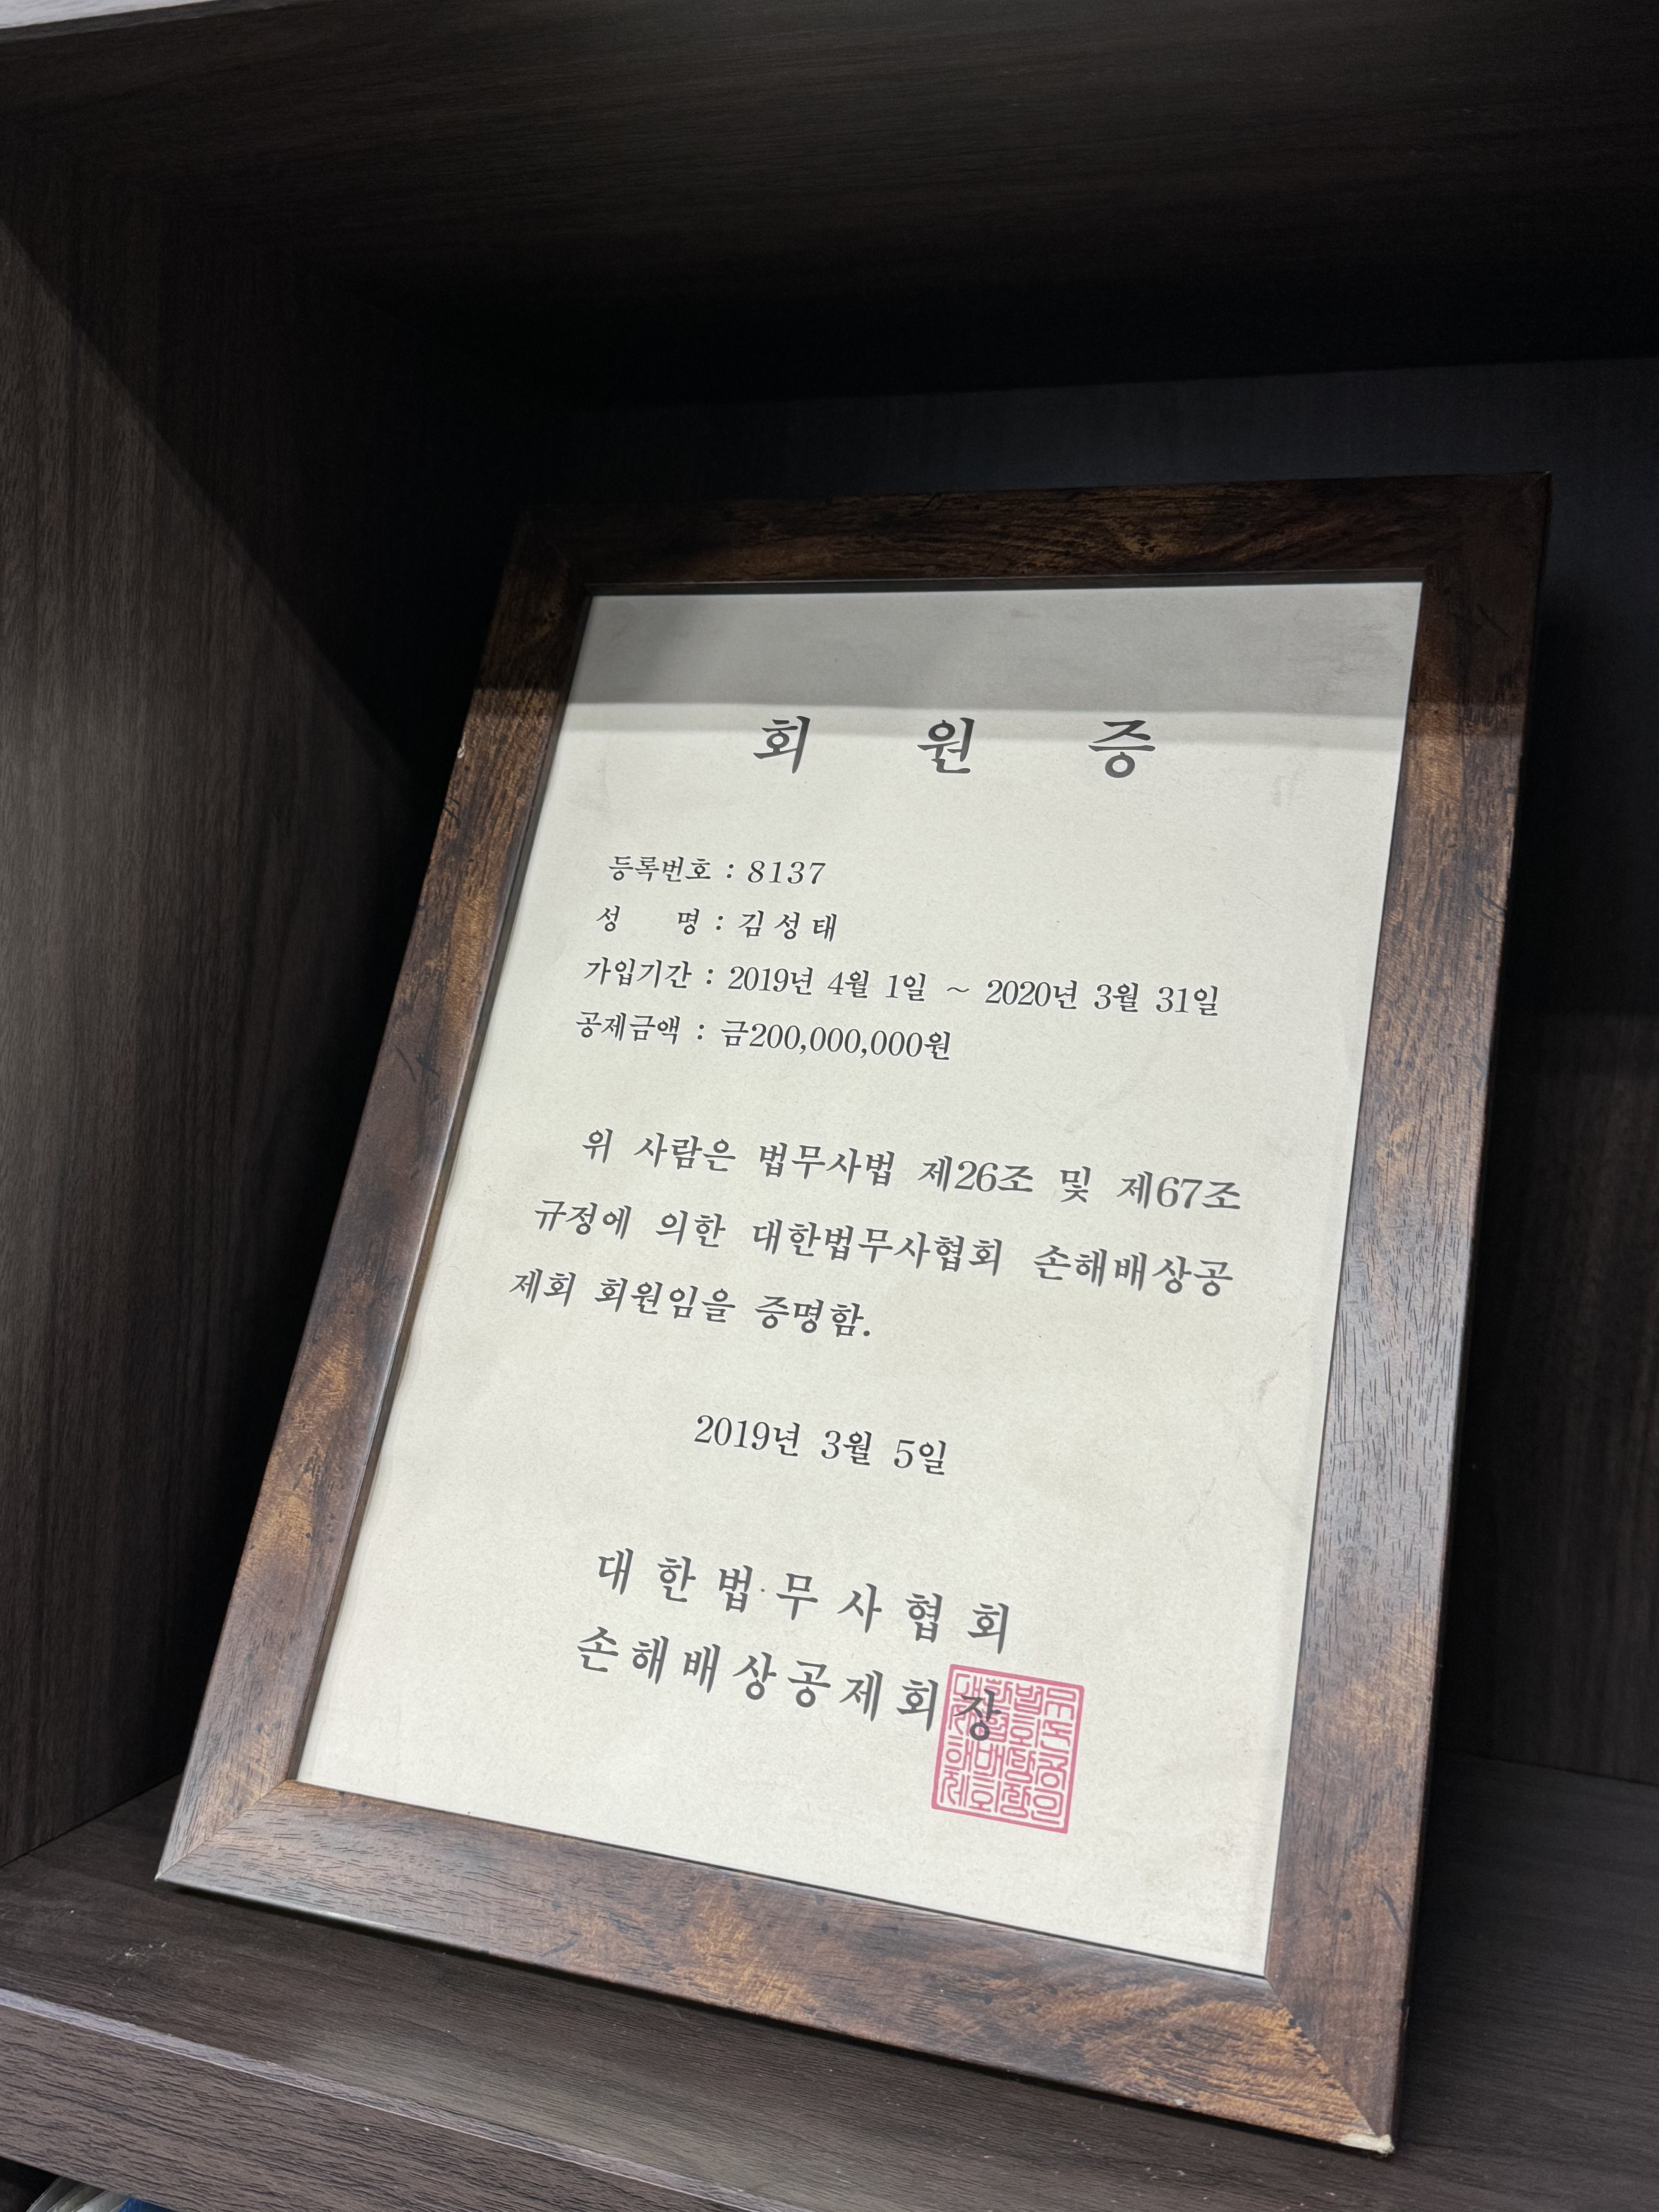 회 원 증
등록번호 : 8137
성 명 : 김 성 태
가입기간 : 2019년 4월 1일 ~ 2020년 3월 31일
공제금액 : 금200,000,000원
위 사람은 법무사법 제26조 및 제67조
규정에 의한 대한법무사협회 손해배상공
제회 회원임을 증명함.
2019년 3월 5일
대 한 법 무 사 협 회
손 해 배 상 공 제 회 장